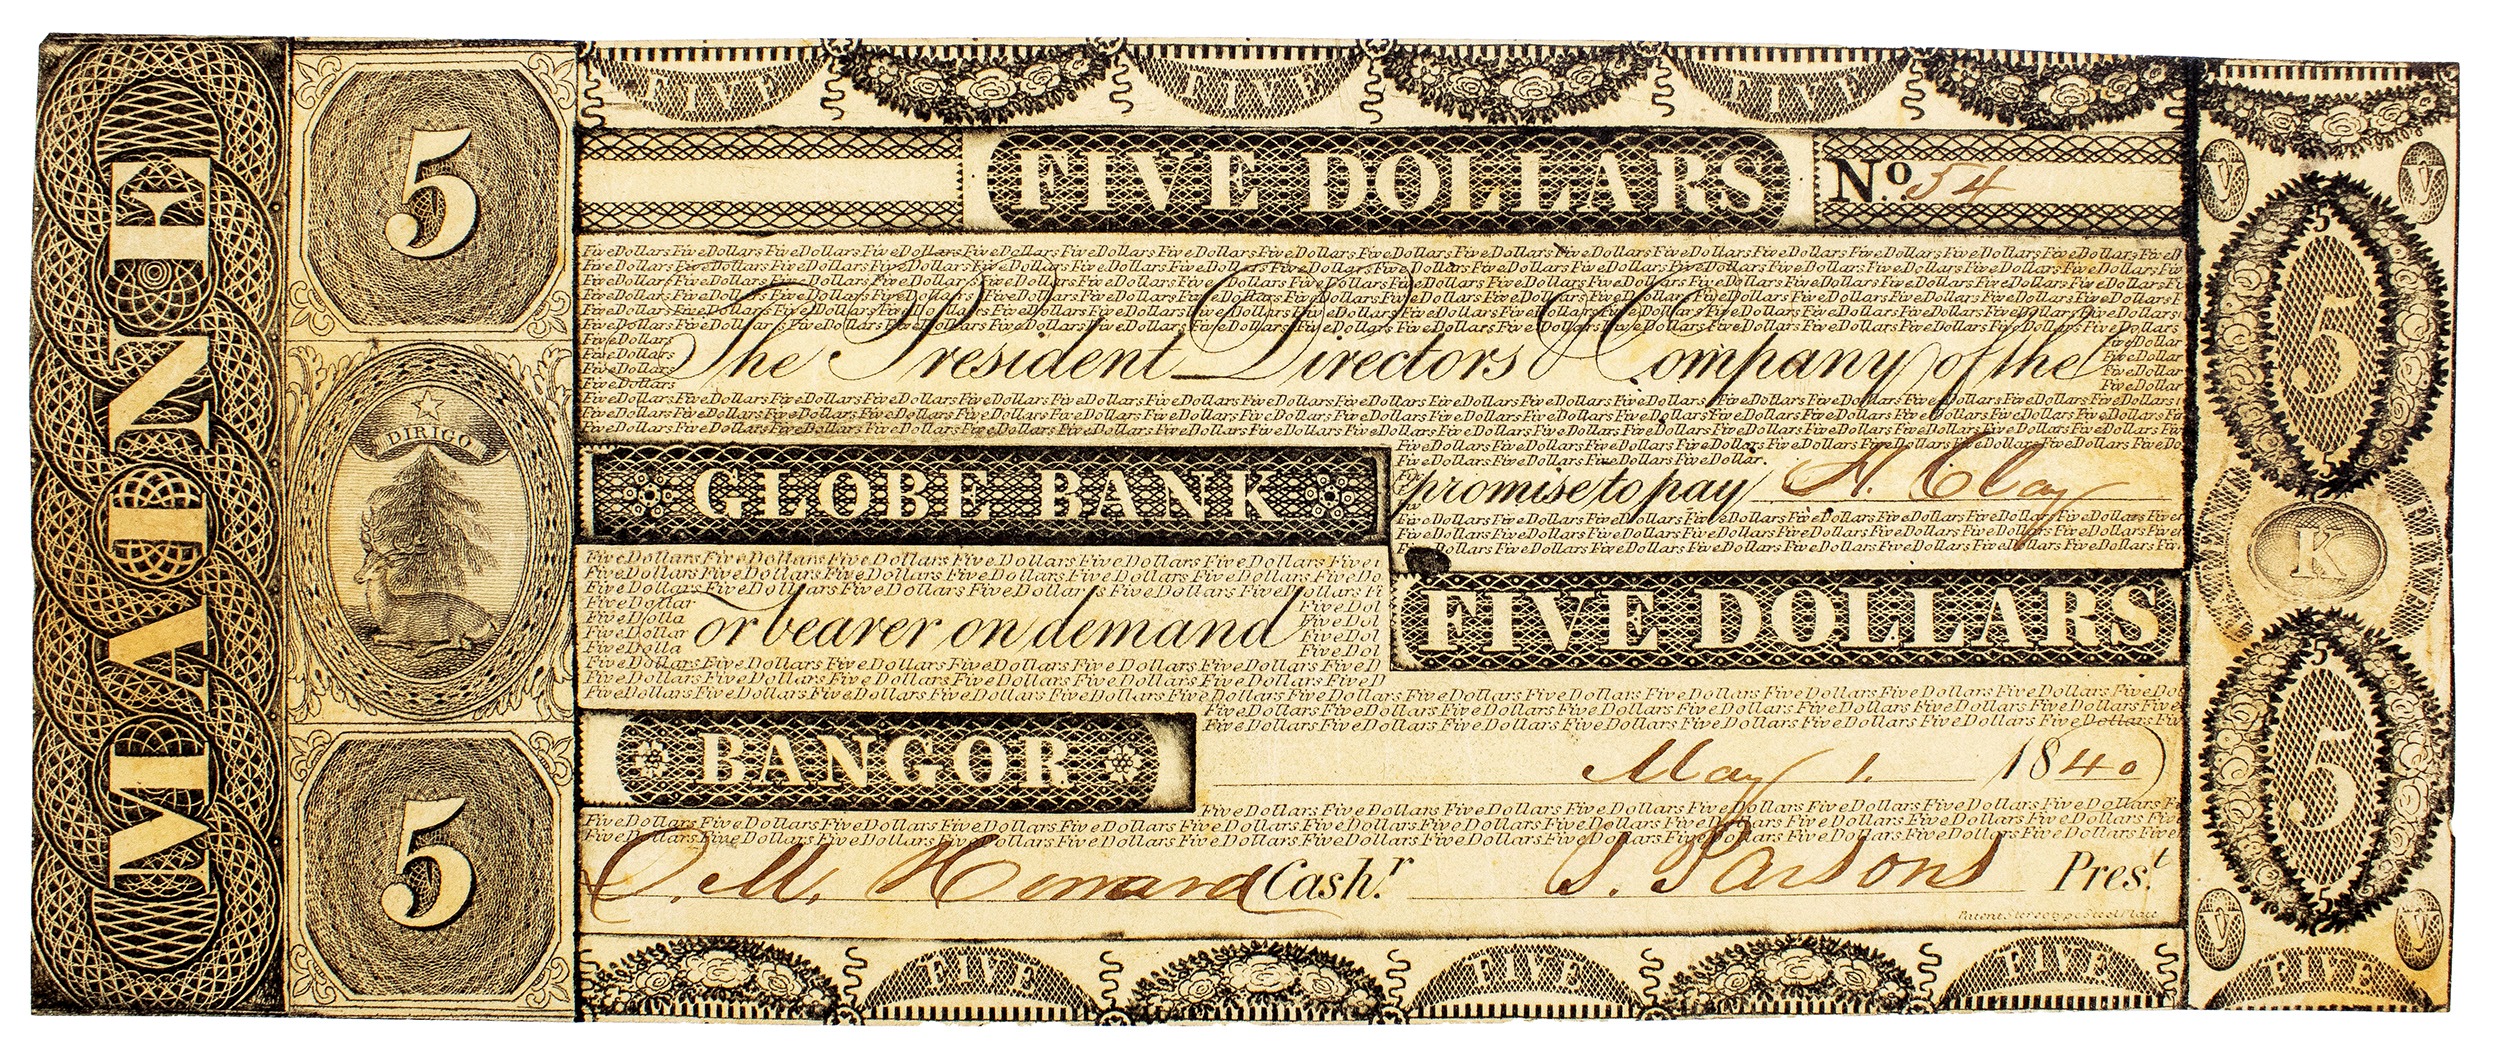 MAINE
5
DIRIGO
5
FIVE FIVE FIVE
FIVE DOLLARS
No. 54
The President Directors & Company of the
GLOBE BANK
promise to pay H. Clay
or bearer on demand
FIVE DOLLARS
BANGOR
May 1. 1840
Cash.r
S. Parsons Pres.t
Patent Stereotype Steel Plate
FIVE FIVE FIVE
V V
5
5
5
K
5
5
5
V V
FIVE